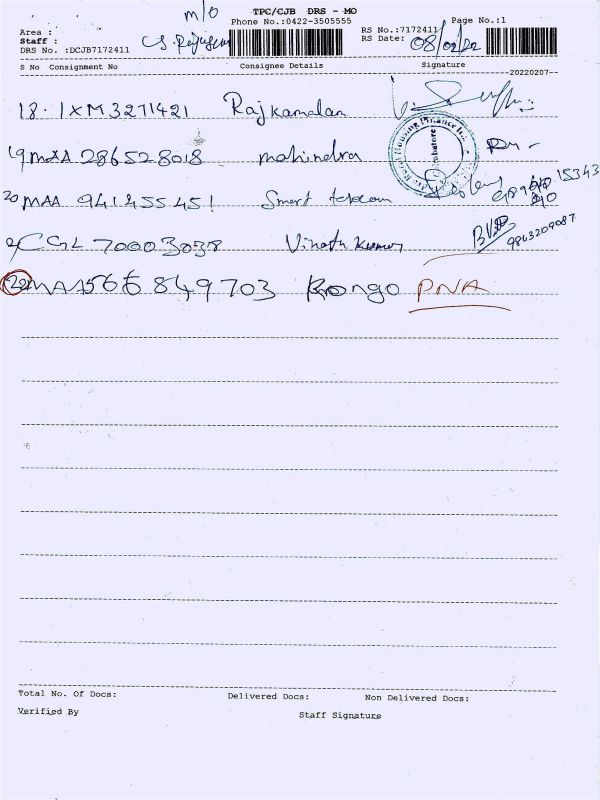 m/o
TPC/CJB DRS - MO
Phone No.:0422-3505555 Page No.:1
Area :
Staff :
RS No.:7172411
DRS No. :DCJB7172411
RS Date: 08/02/22
S No Consignment No Consignee Details Signature
20220207
18. IXM3271421 Rajkamalam
19 MAA 286528018 mahindra
20 MAA 941455451 Smart telecom
21 CGL 70003038 Vinoth Kumar 9843209087
22 MAA 566849703 Rongo PNA
Total No. Of Docs: Delivered Docs: Non Delivered Docs:
Verified By Staff Signature